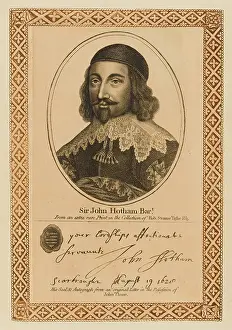 Sir John Hotham Bar!
From an extra rare Print in the Collection of
your lordships affectionate
Servant
John Hotham
August 19
His Seal & Autograph from an Original Letter in the Possession of
John Thane.